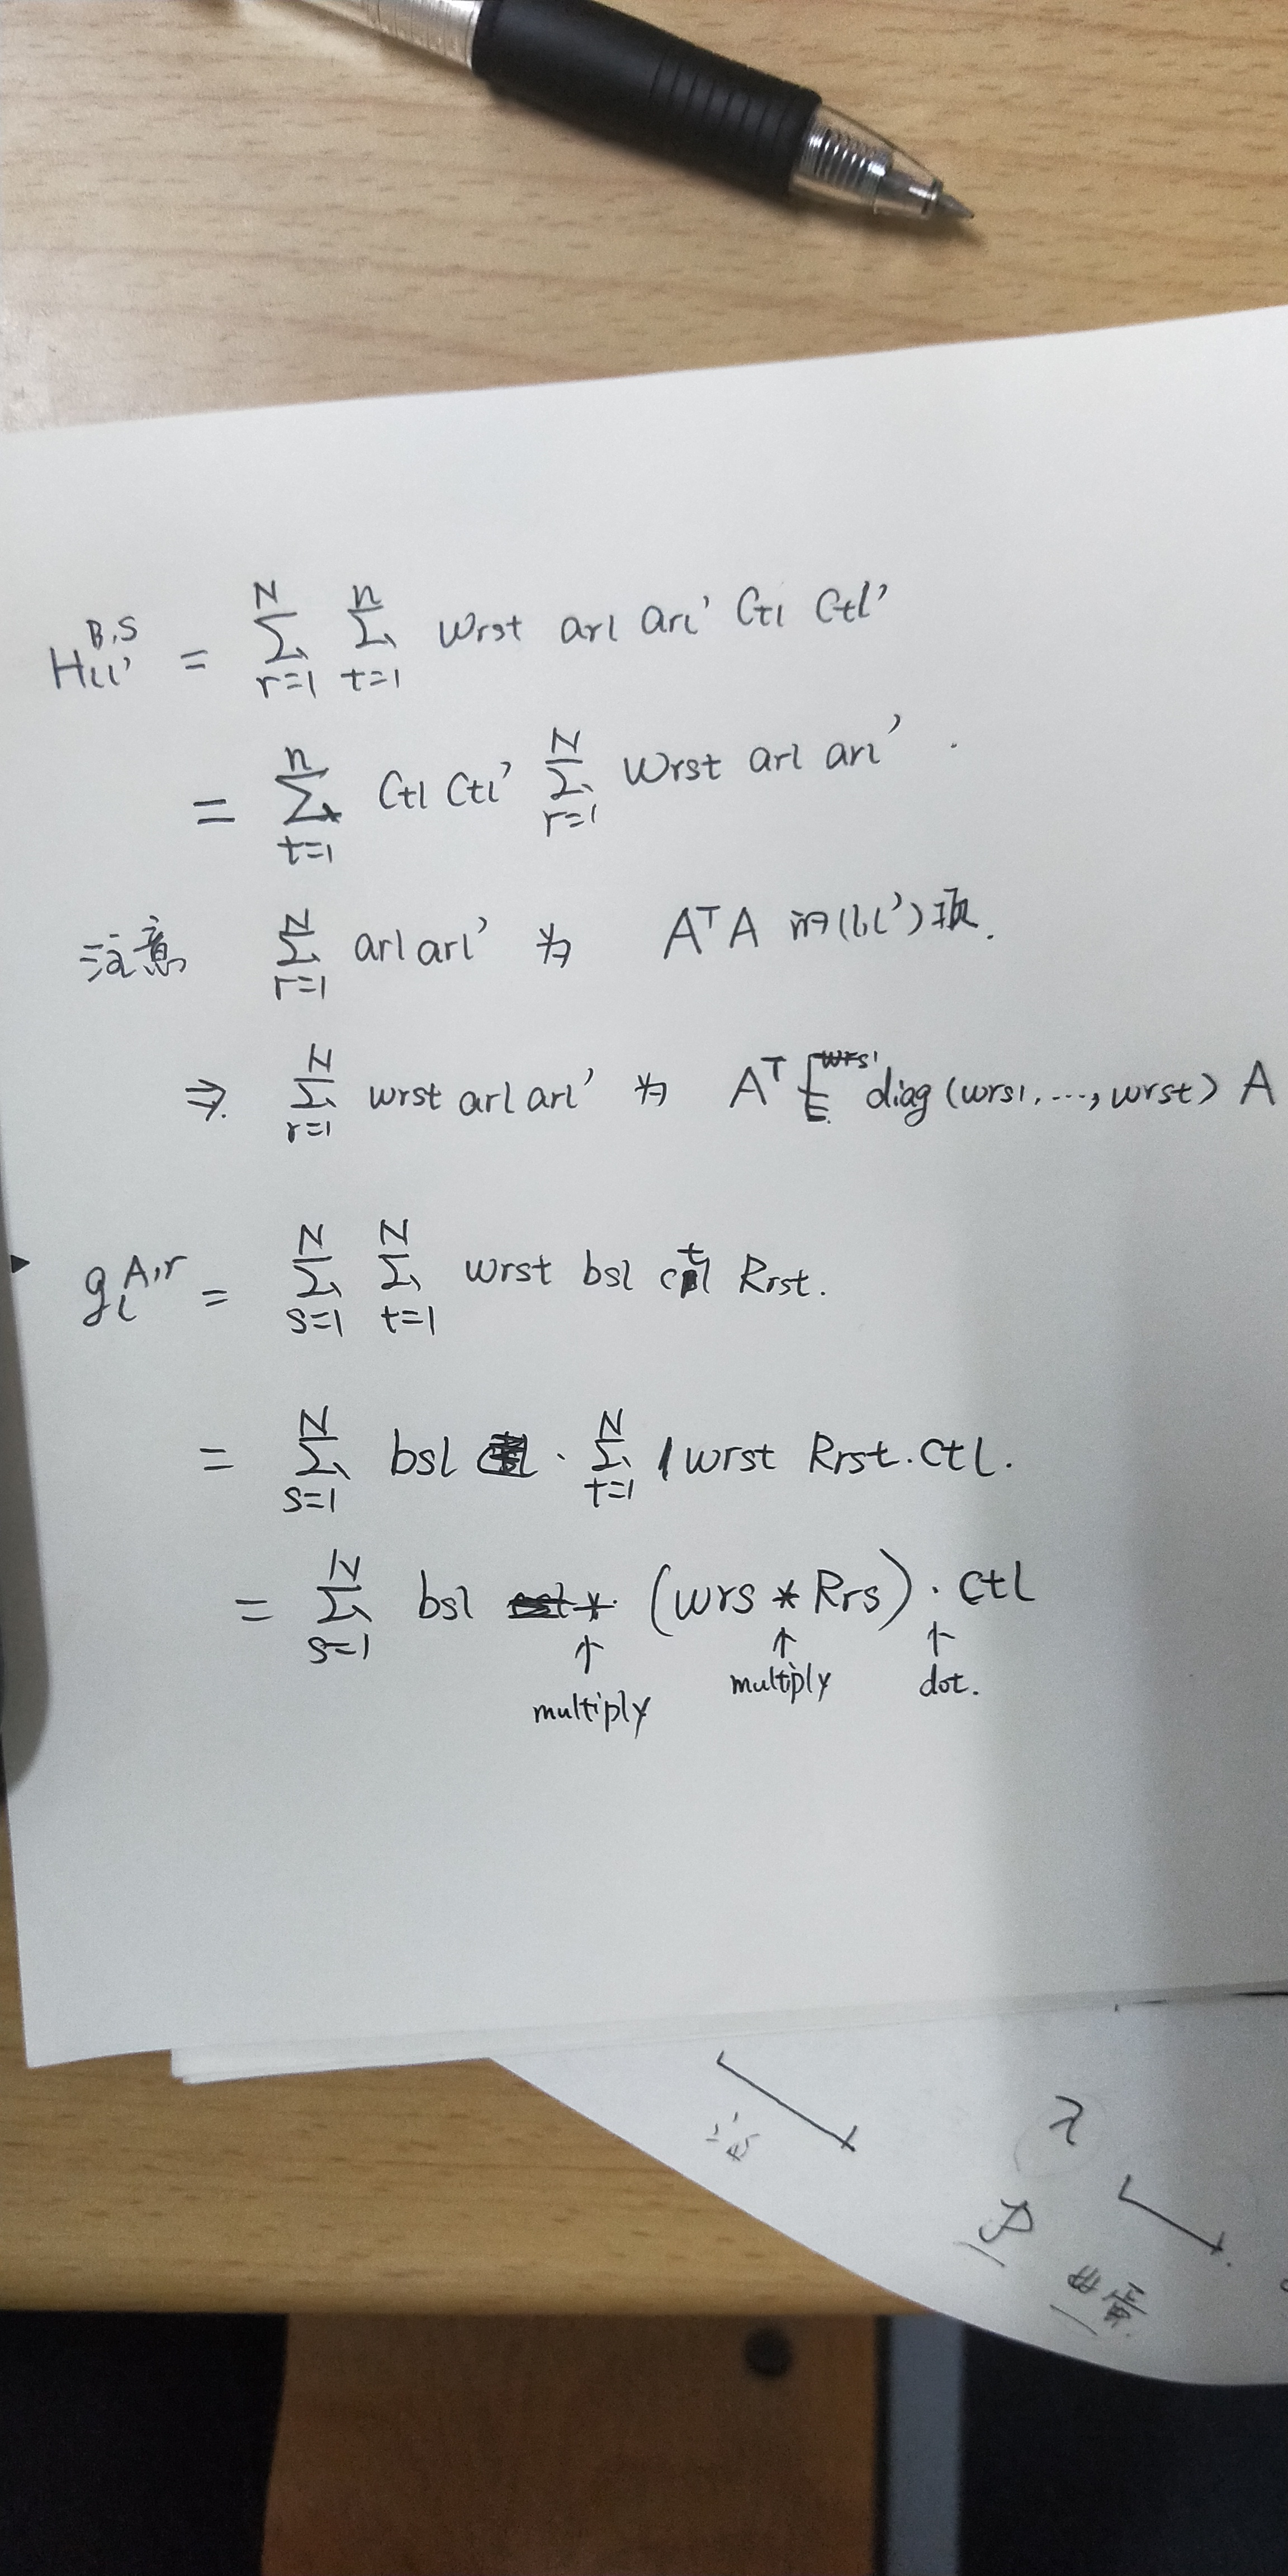 H_{ll'}^{B,S} = \sum_{r=1}^{N} \sum_{t=1}^{n} w_{rst} a_{rl} a_{rl'} c_{tl} c_{tl'}
= \sum_{t=1}^{n} c_{tl} c_{tl'} \sum_{r=1}^{N} w_{rst} a_{rl} a_{rl'} .
注意 \sum_{r=1}^{N} a_{rl} a_{rl'} 为 A^T A 的(l,l')项.
⇒ \sum_{r=1}^{N} w_{rst} a_{rl} a_{rl'} 为 A^T diag(w_{rs1}, ..., w_{rst}) A
g_l^{A,r} = \sum_{s=1}^{N} \sum_{t=1}^{N} w_{rst} b_{sl} c_{tl} R_{rst}.
= \sum_{s=1}^{N} b_{sl} · \sum_{t=1}^{N} w_{rst} R_{rst} . c_{tl}.
= \sum_{s=1}^{N} b_{sl} (w_{rs} * R_{rs}) · c_{tl}
↑ ↑ ↑
multiply multiply dot.
λ